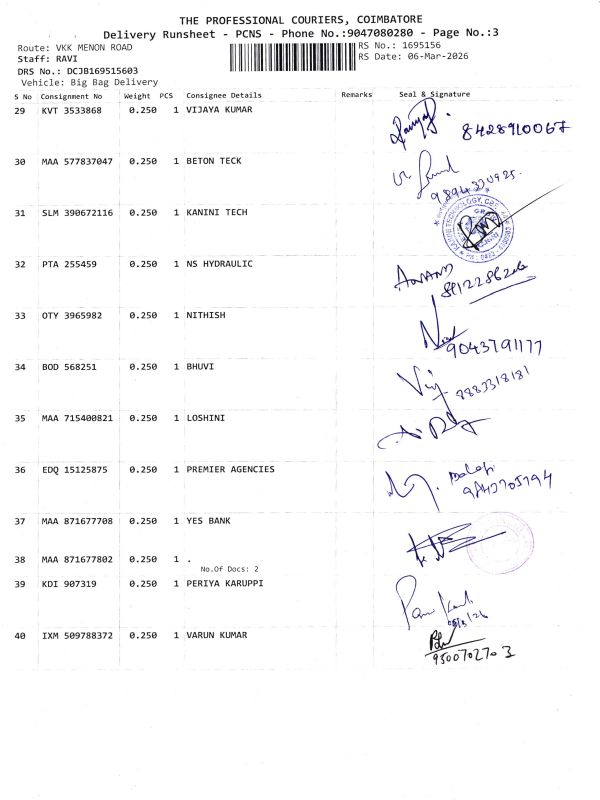 THE PROFESSIONAL COURIERS, COIMBATORE
Delivery Runsheet - PCNS - Phone No.:9047080280 - Page No.:3
Route: VKK MENON ROAD RS No.: 1695156
Staff: RAVI RS Date: 06-Mar-2026
DRS No.: DCJB169515603
Vehicle: Big Bag Delivery
S No Consignment No Weight PCS Consignee Details Remarks Seal & Signature
29 KVT 3533868 0.250 1 VIJAYA KUMAR
8428910067
30 MAA 577837047 0.250 1 BETON TECK
9894330925.
31 SLM 390672116 0.250 1 KANINI TECH
32 PTA 255459 0.250 1 NS HYDRAULIC
ANAND
33 OTY 3965982 0.250 1 NITHISH
9043791177
34 BOD 568251 0.250 1 BHUVI
8883318181
35 MAA 715400821 0.250 1 LOSHINI
36 EDQ 15125875 0.250 1 PREMIER AGENCIES
Balaji
9843705794
37 MAA 871677708 0.250 1 YES BANK
38 MAA 871677802 0.250 1 .
No.Of Docs: 2
39 KDI 907319 0.250 1 PERIYA KARUPPI
40 IXM 509788372 0.250 1 VARUN KUMAR
9500702703